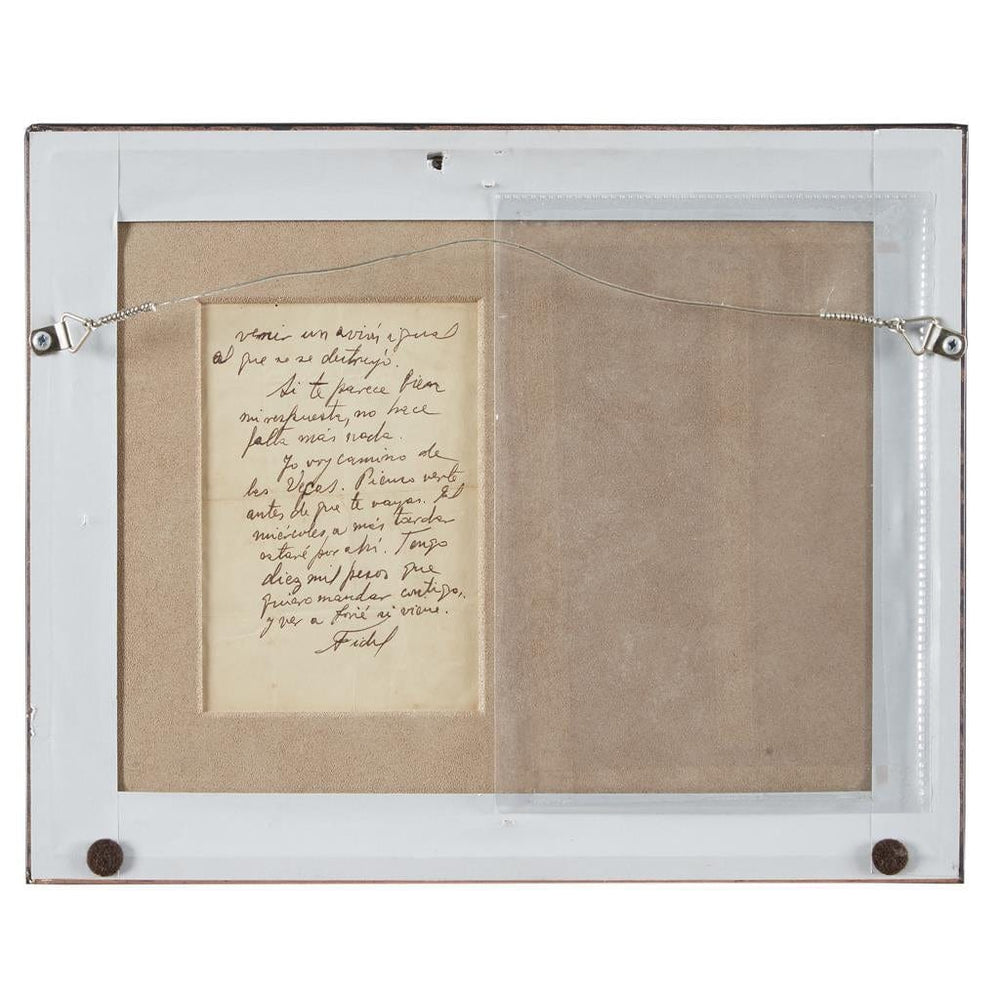 venir un avión igual
al que se destruyó.
Si te parece bien
mi respuesta, no hace
falta más nada.
Yo voy camino de
las Vegas. Pienso verte
antes de que te vayas. El
miércoles, a más tardar
estaré por ahí. Tengo
diez mil pesos que
quiero mandar contigo,
y ver a José si viene.
Fidel